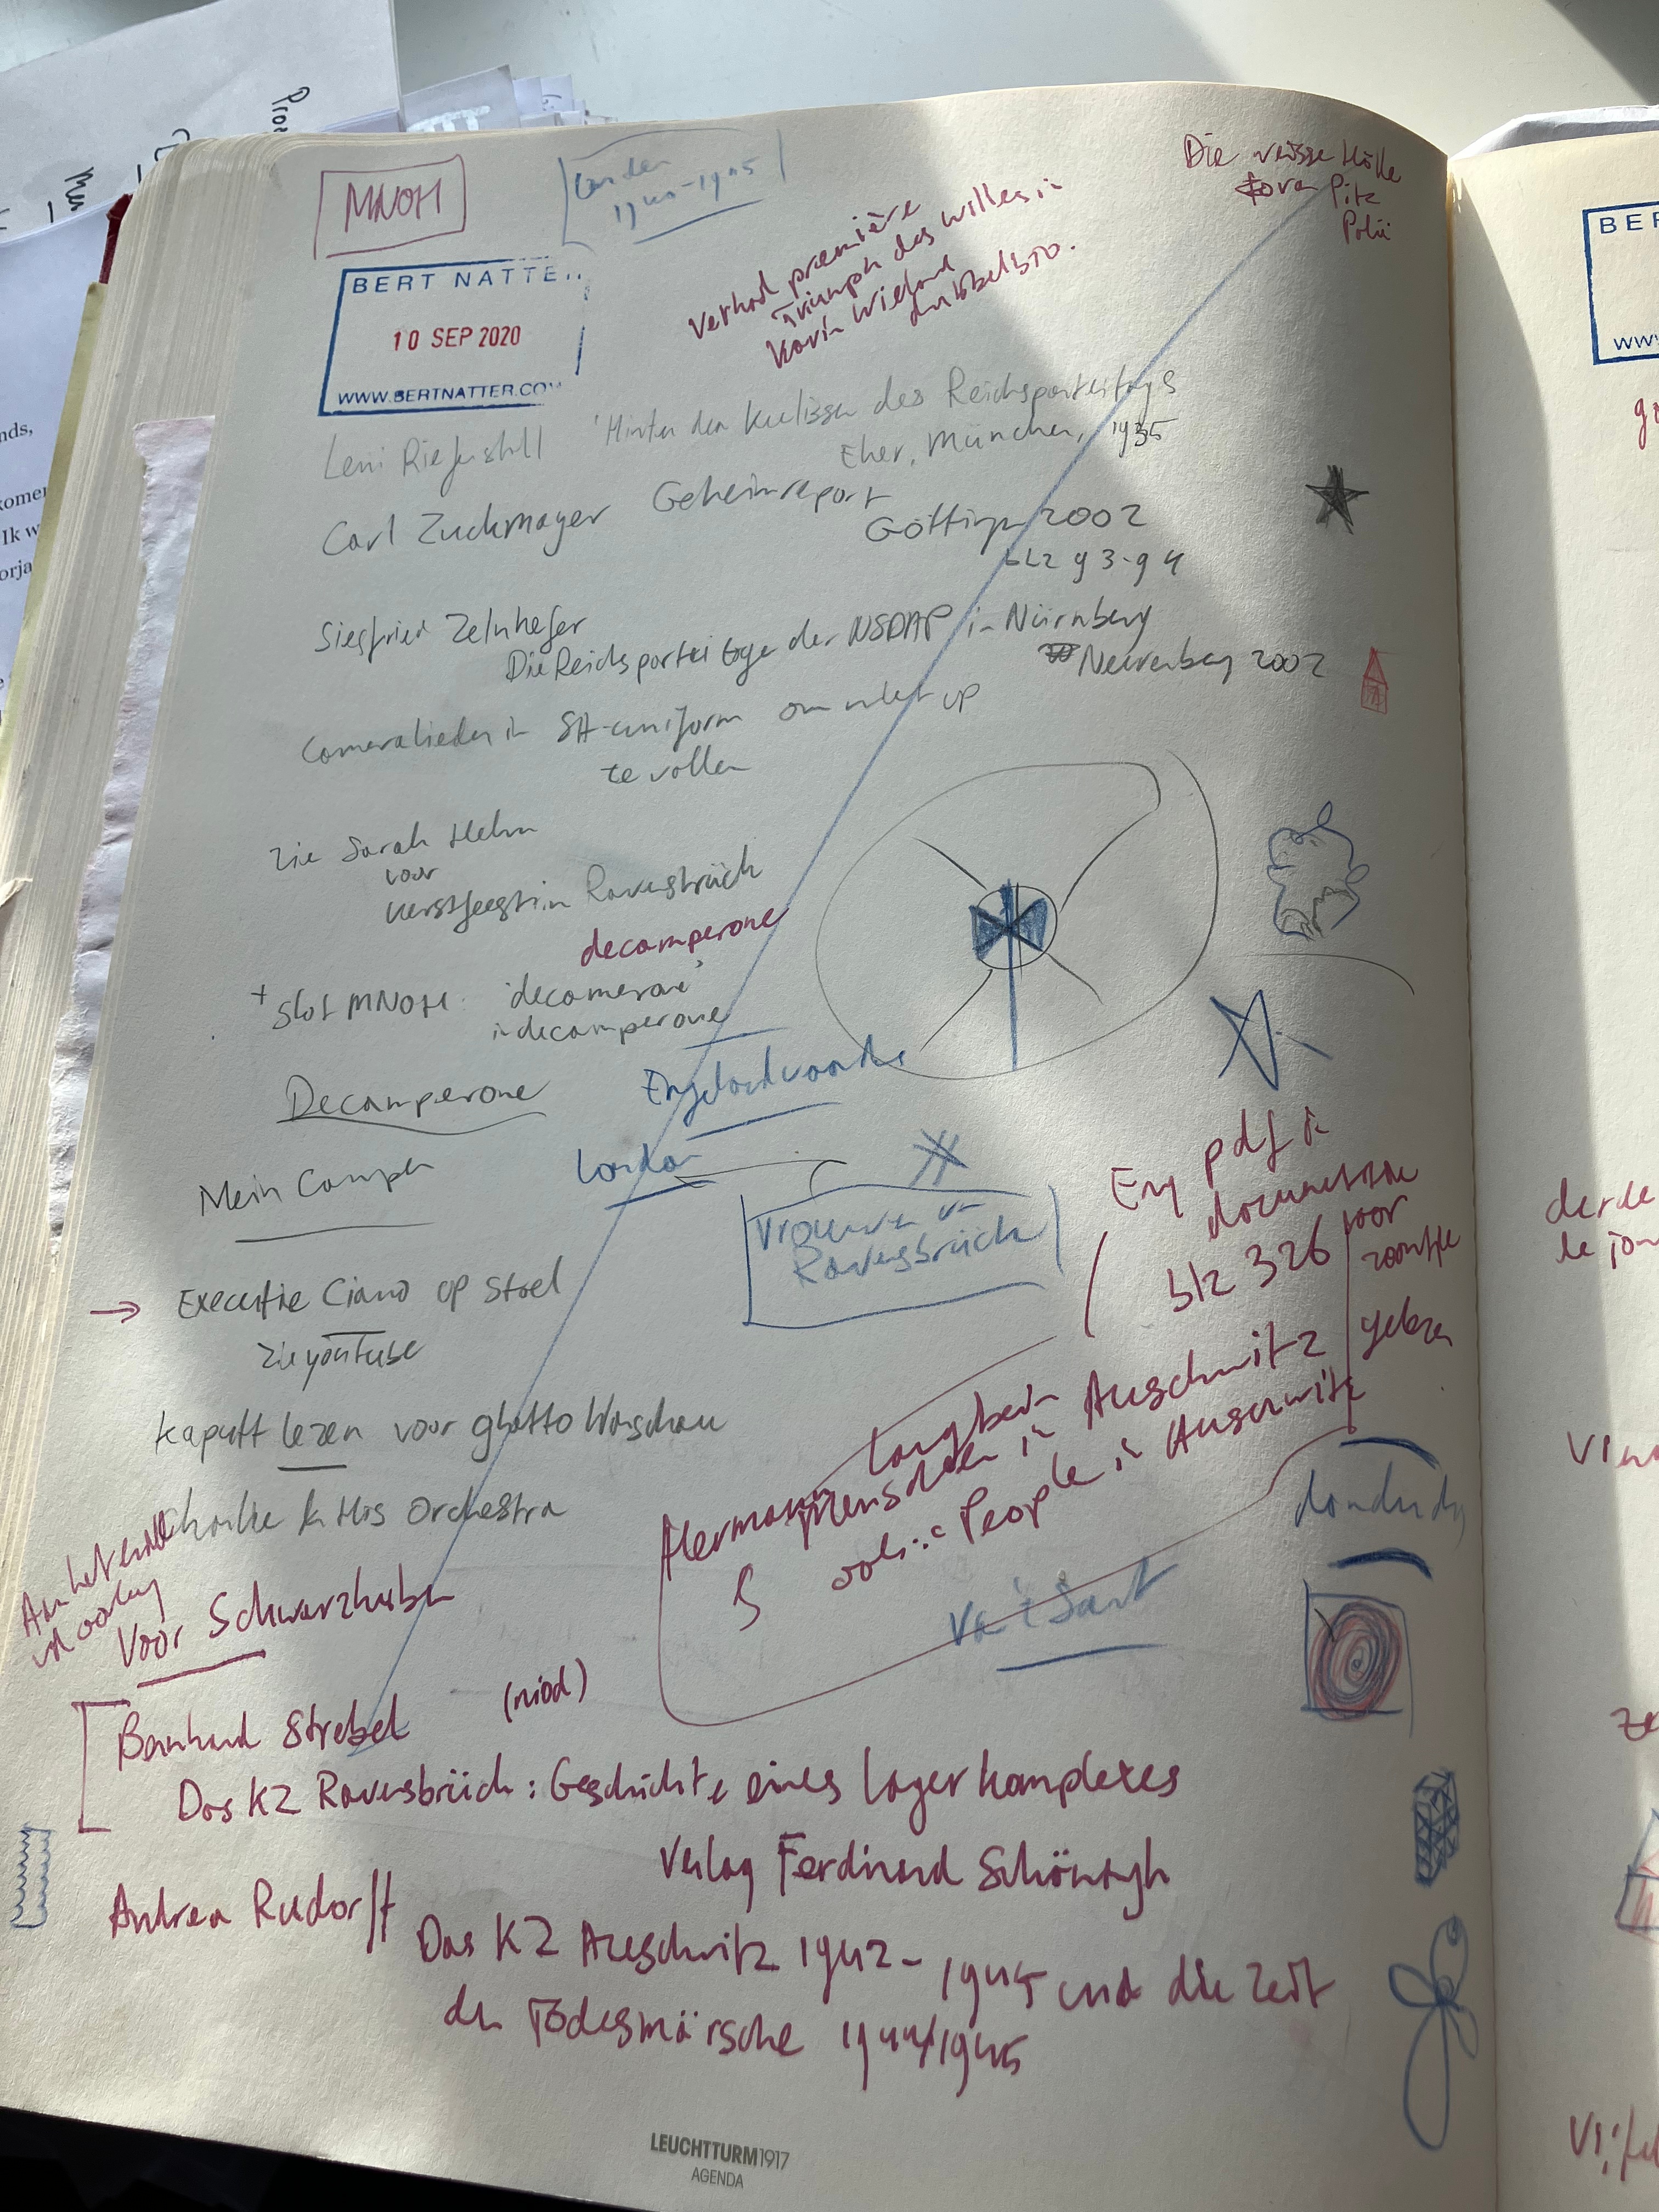 MNOH
Londen
1940-1945
Die weisse Hölle
Piz
Palü
BERT NATTE
10 SEP 2020
WWW.BERTNATTER.CO
première
Triumph des willens in
Karin Wieland
Leni Riefenstahl 'Hinter den Kulissen des Reichsparteitags
Eher, München, 1935
Carl Zuckmayer Geheimreport
Göttingen 2002
blz 93-94
Siegfried Zelnhefer
Die Reichsparteitage der NSDAP in Nürnberg
Neurenberg 2002
Cameralieden in SA-uniform om niet op
te vallen
Zie Sarah Helm
voor
kerstfeest in Ravensbrück
decamperone
+ Slot MNOH: 'decamerone'
in decamperone
Decamperone
Engelandvaarder
Mein Camper
London
Vrouwen in
Ravensbrück
Eng pdf in
documenten
blz 326 voor
gelezen
→ Executie Ciano op stoel
Zie youtube
Kaputt lezen voor ghetto Warschau
Charlie & His Orchestra
Hermann Langbein
Menschen in Auschwitz
ook: People in Auschwitz
donderdag
Van 't Sant
Aan het eind
vd oorlog
Voor Schwarzhuber
Bernhard Strebel (niod)
Das KZ Ravensbrück: Geschichte eines Lagerkomplexes
Verlag Ferdinand Schöningh
Andrea Rudorff
Das KZ Auschwitz 1942-1945 und die Zeit
der Todesmärsche 1944/1945
LEUCHTTURM1917
AGENDA
BER
WWW
derde
komen
Ik w